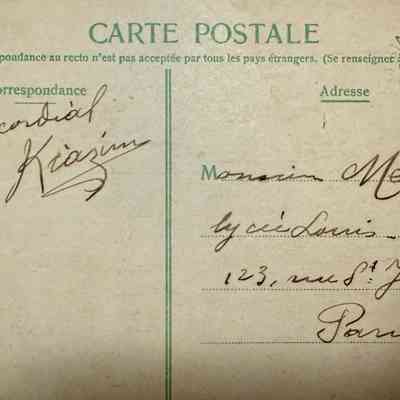 CARTE POSTALE
pondance au recto n'est pas acceptée par tous les pays étrangers. (Se renseigner à
orrespondance
Adresse
cordial
Kiazim
Monsieur Me
lycée Louis
123, rue St. J
Pari